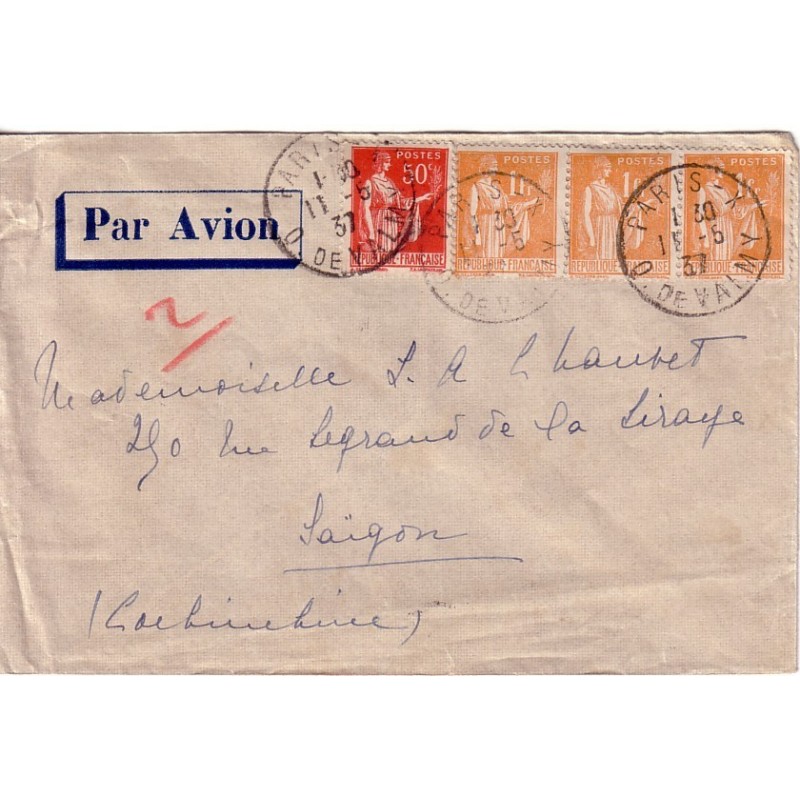 Par Avion
POSTES
50c
RÉPUBLIQUE·FRANÇAISE
POSTES
1f
RÉPUBLIQUE·FRANÇAISE
POSTES
1f
RÉPUBLIQUE·FRANÇAISE
POSTES
1f
RÉPUBLIQUE·FRANÇAISE
PARIS
1 30
11 -5
37
Q. DE VALMY
PARIS-X
1 30
-5
Q. DE VALMY
PARIS-X
1 30
11 -5
37
Q. DE VALMY
2
Mademoiselle S. A Chauvet
290 rue Legrand de la Liraye
Saïgon
(Cochinchine)